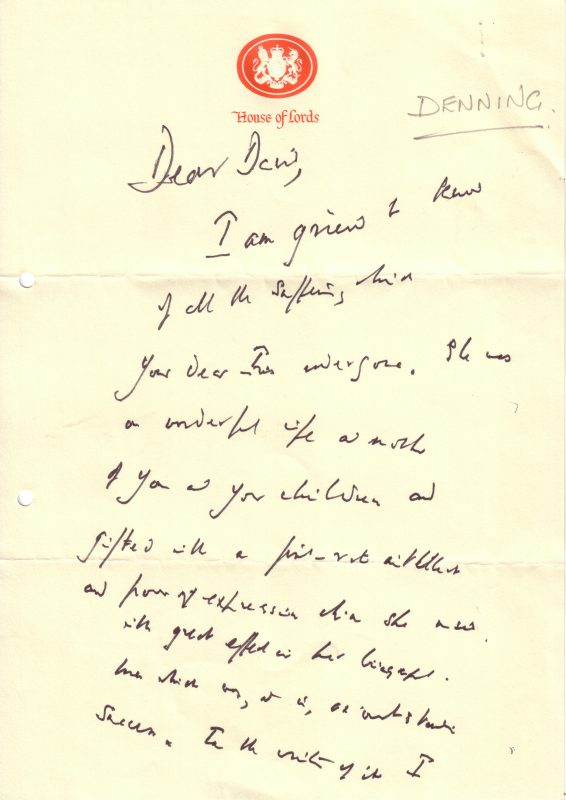 House of Lords
DENNING.
Dear
I am grieved to know
of all the suffering which
your dear undergone. She was
a wonderful wife and mother
of you and your children and
gifted with a first-rate intellect
and power of expression which she used
with great effect in her biography.
which was, and is,
success. In the writing of it I